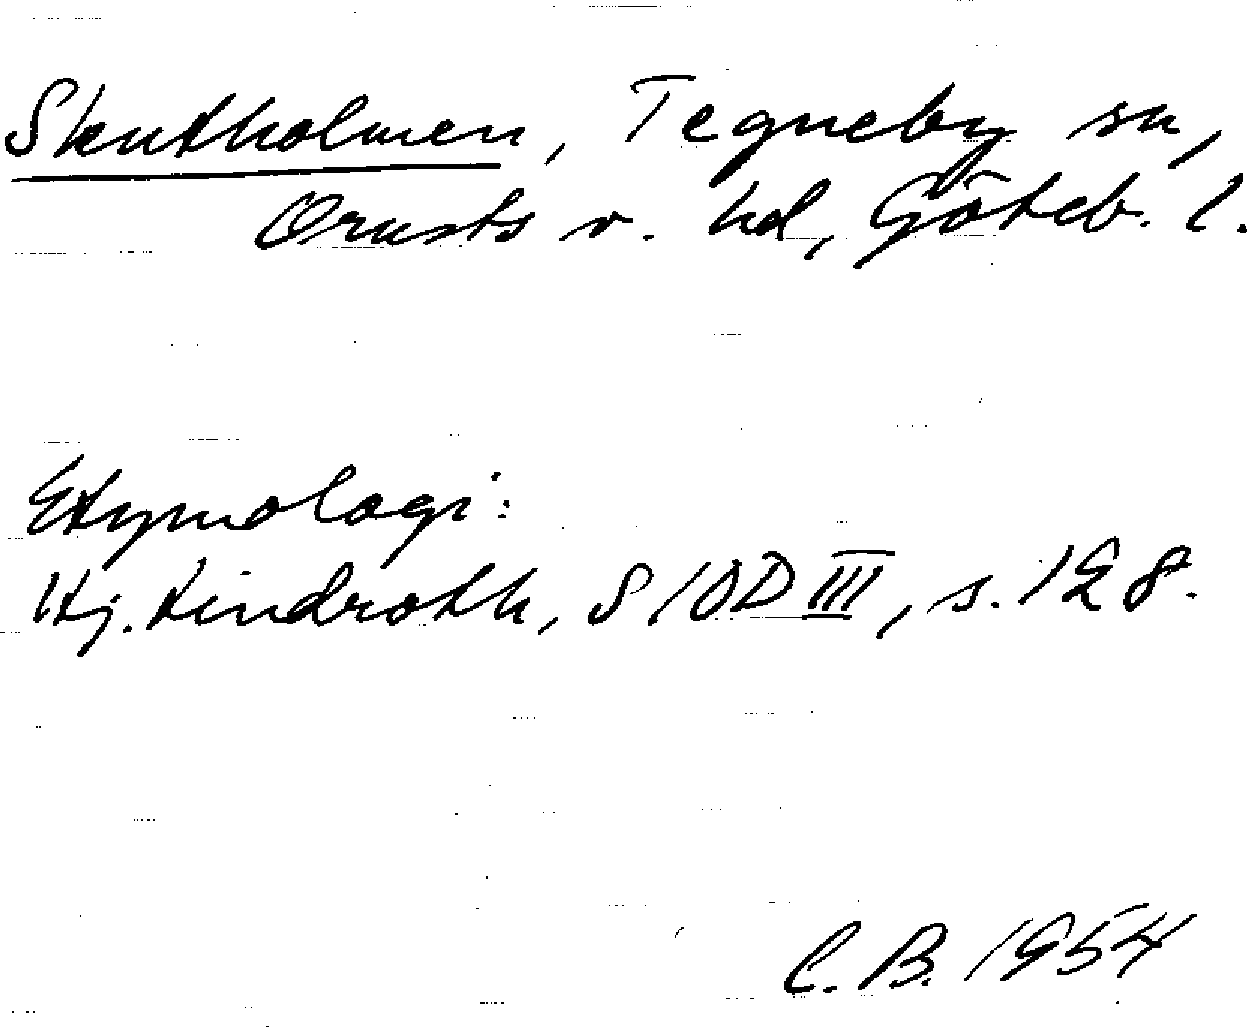 Skutholmen, Tegneby sn,
Orusts v. hd, Göteb. l.
Etymologi:
Hj. Lindroth, SIOD III, s. 128.
C. B. 1954